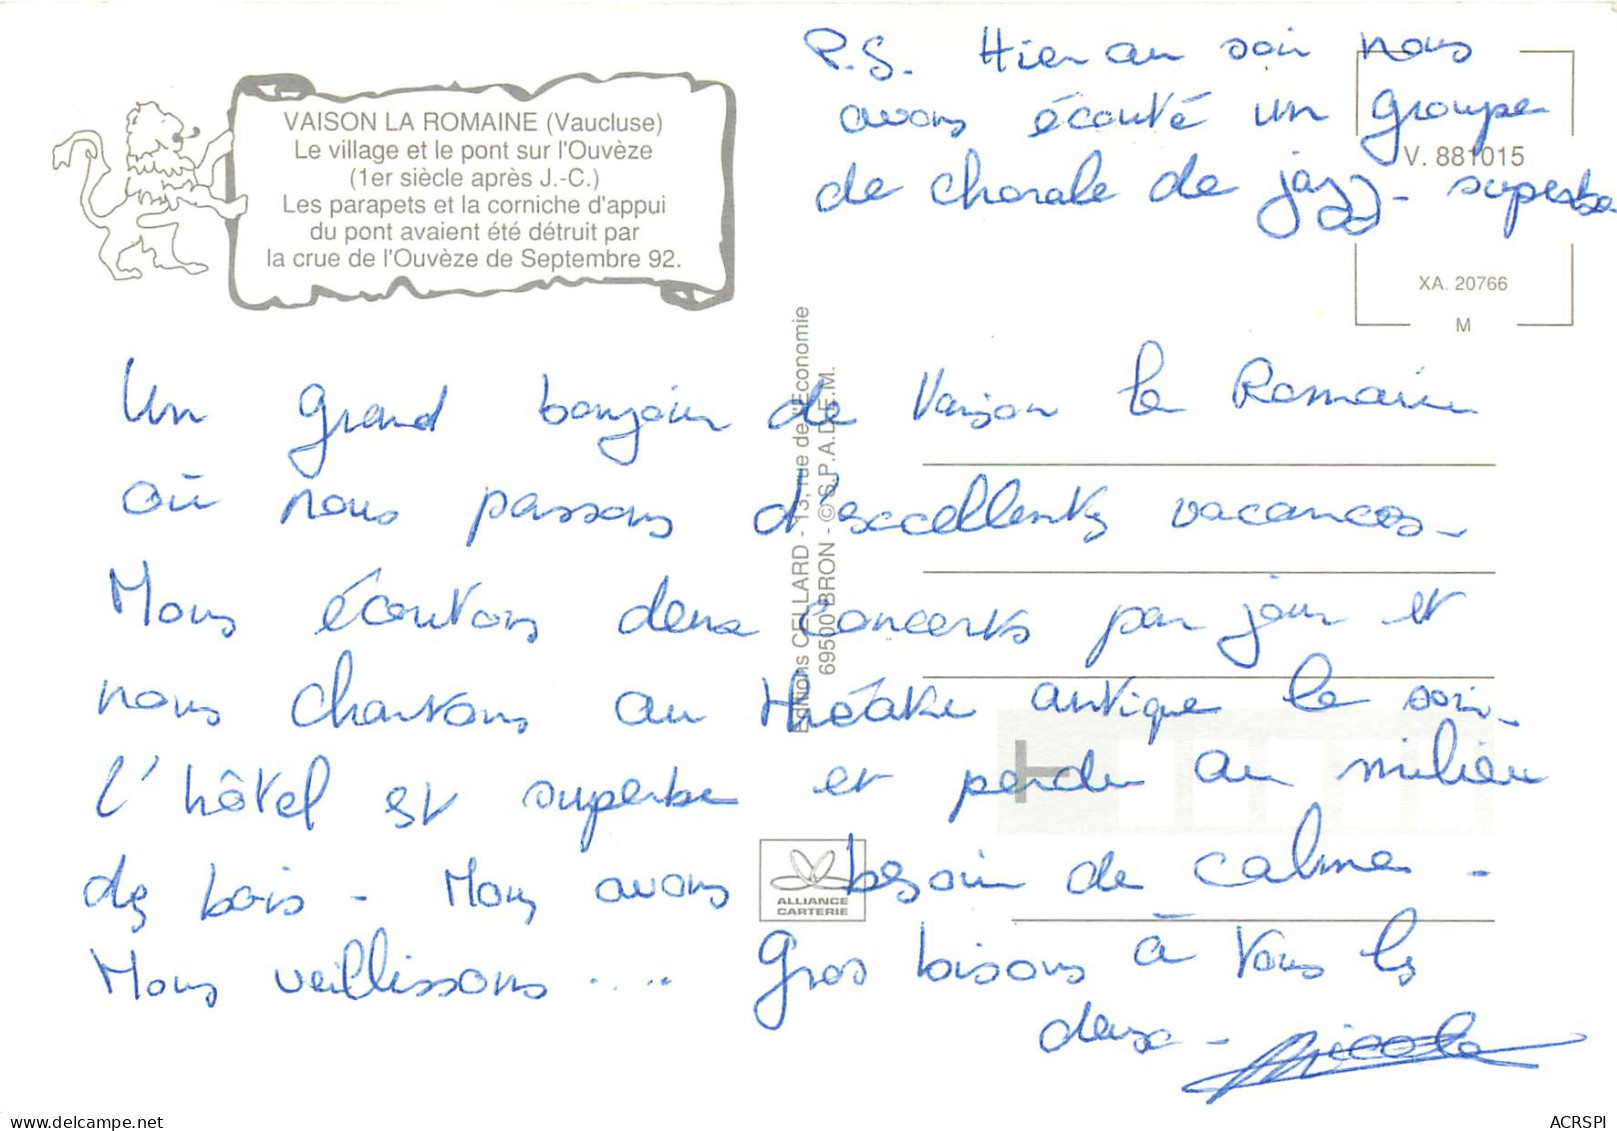 VAISON LA ROMAINE (Vaucluse)
Le village et le pont sur l'Ouvèze
(1er siècle après J.-C.)
Les parapets et la corniche d'appui
du pont avaient été détruit par
la crue de l'Ouvèze de Septembre 92.
P.S. Hier au soir nous
avons écouté un groupe
de chorale de jazz - superbe
V. 881015
XA. 20766
M
Un grand bonjour de Vaison la Romaine
où nous passons d'excellentes vacances -
Nous écoutons deux concerts par jour et
nous chantons au théâtre antique le soir -
l'hôtel est superbe et perdu au milieu
des bois - Nous avons besoin de calme -
Nous vieillissons .... Gros bisous à vous les
deux - Nicole
Editions CELLARD - 13, rue de l'Economie
69500 BRON - © S.P.A.D.E.M.
ALLIANCE
CARTERIE
ACRSPI